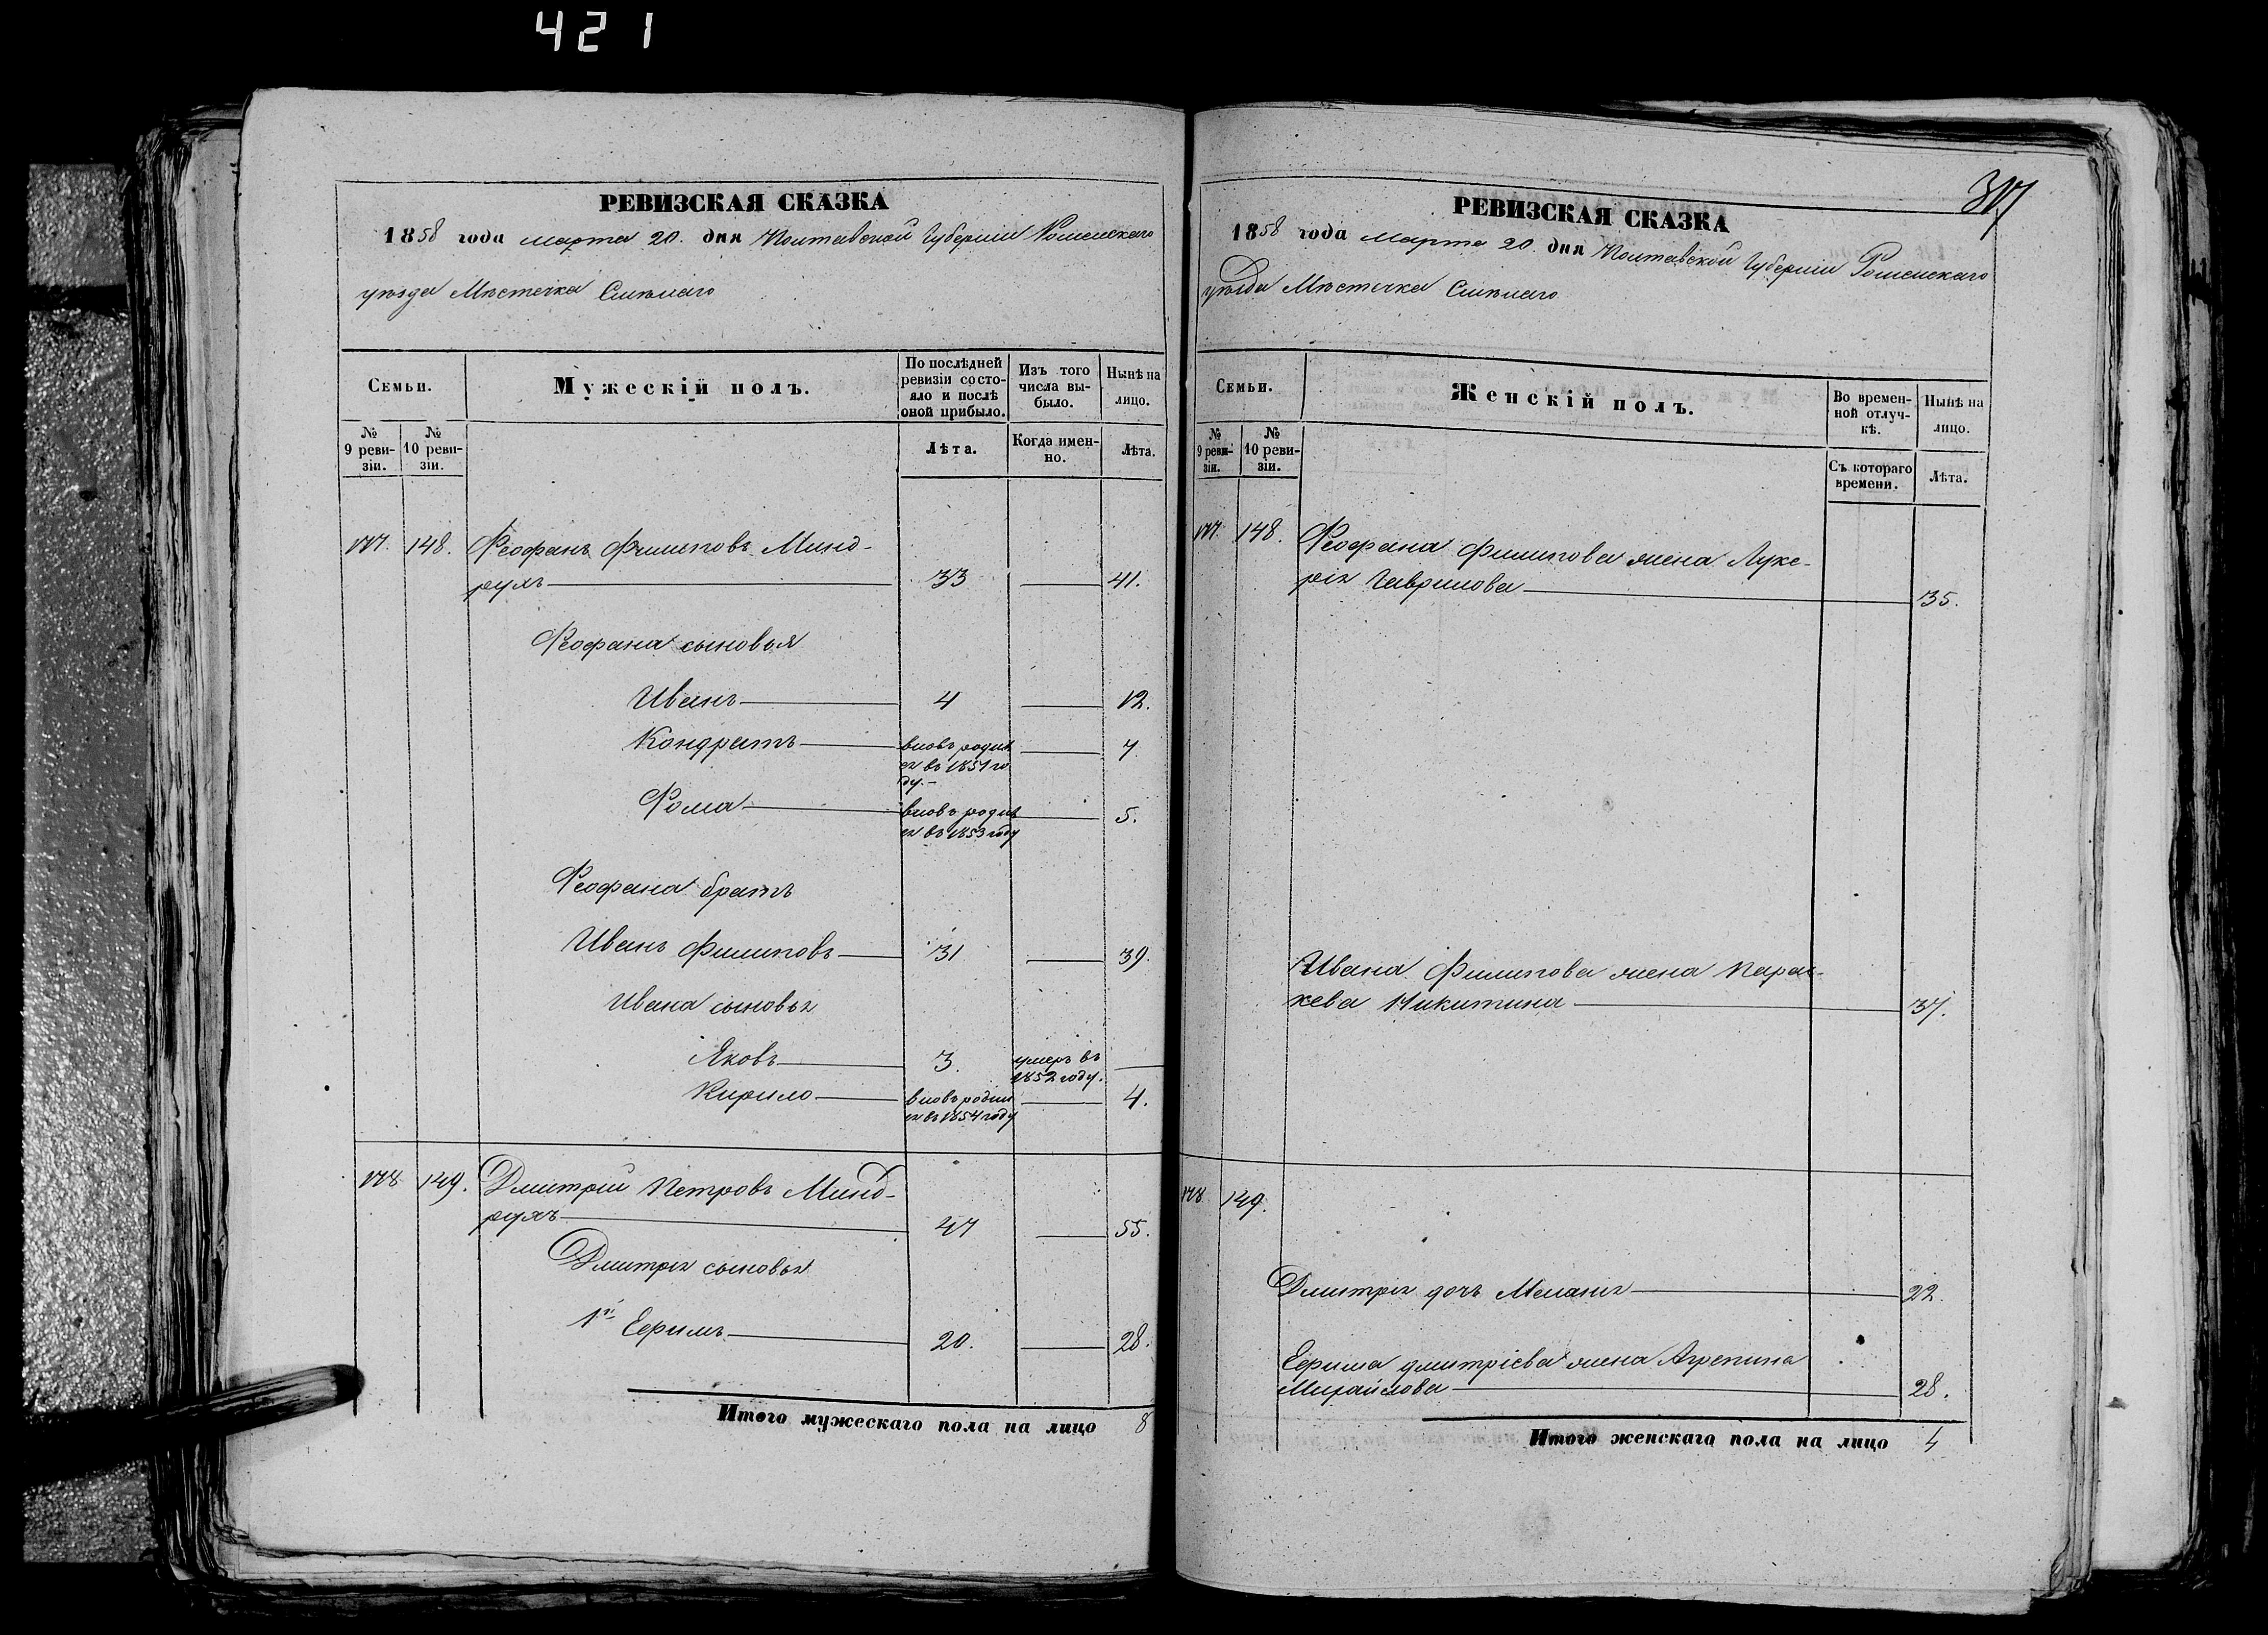 421
РЕВИЗСКАЯ СКАЗКА
1858 года марта 20. дня Полтавской Губерніи Роменскаго
уѣзда Мѣстечка Смѣлаго
Семьи.
Мужескій полъ.
По послѣдней ревизіи состояло и послѣ оной прибыло.
Изъ того числа выбыло.
Нынѣ на лицо.
№ 9 ревизіи.
№ 10 ревизіи.
Лѣта.
Когда именно.
Лѣта.
177. 148. Феофанъ Филиповъ Минд-
рухъ 33 41.
Феофана сыновья
Иванъ 4 12.
Кондратъ вновь родил 7
ся въ 1851 го
ду.
Фома вновь родил 5.
ся въ 1853 году
Феофана братъ
Иванъ Филиповъ 31 39.
Ивана сыновья
Яковъ 3. умеръ въ
1852 году.
Кирило вновь родил 4.
ся въ 1854 году
178 149. Дмитрій Петровъ Минд-
рухъ 47 55.
Дмитрія сыновья
1й Ефимъ 20. 28.
Итого мужескаго пола на лицо 8
317
РЕВИЗСКАЯ СКАЗКА
1858 года марта 20. дня Полтавской Губерніи Роменскаго
уѣзда Мѣстечка Смѣлаго
Семьи.
Женскій полъ.
Во временной отлучкѣ.
Нынѣ на лицо.
№ 9 ревизіи.
№ 10 ревизіи.
Съ котораго времени.
Лѣта.
177. 148. Феофана Филипова жена Луке-
рія Гаврилова 35.
Ивана Филипова жена Парас-
кева Никитина 37.
178 149.
Дмитрія дочь Меланія 22.
Ефима дмитріева жена Агрепина
Михайлова 28.
Итого женскаго пола на лицо 4